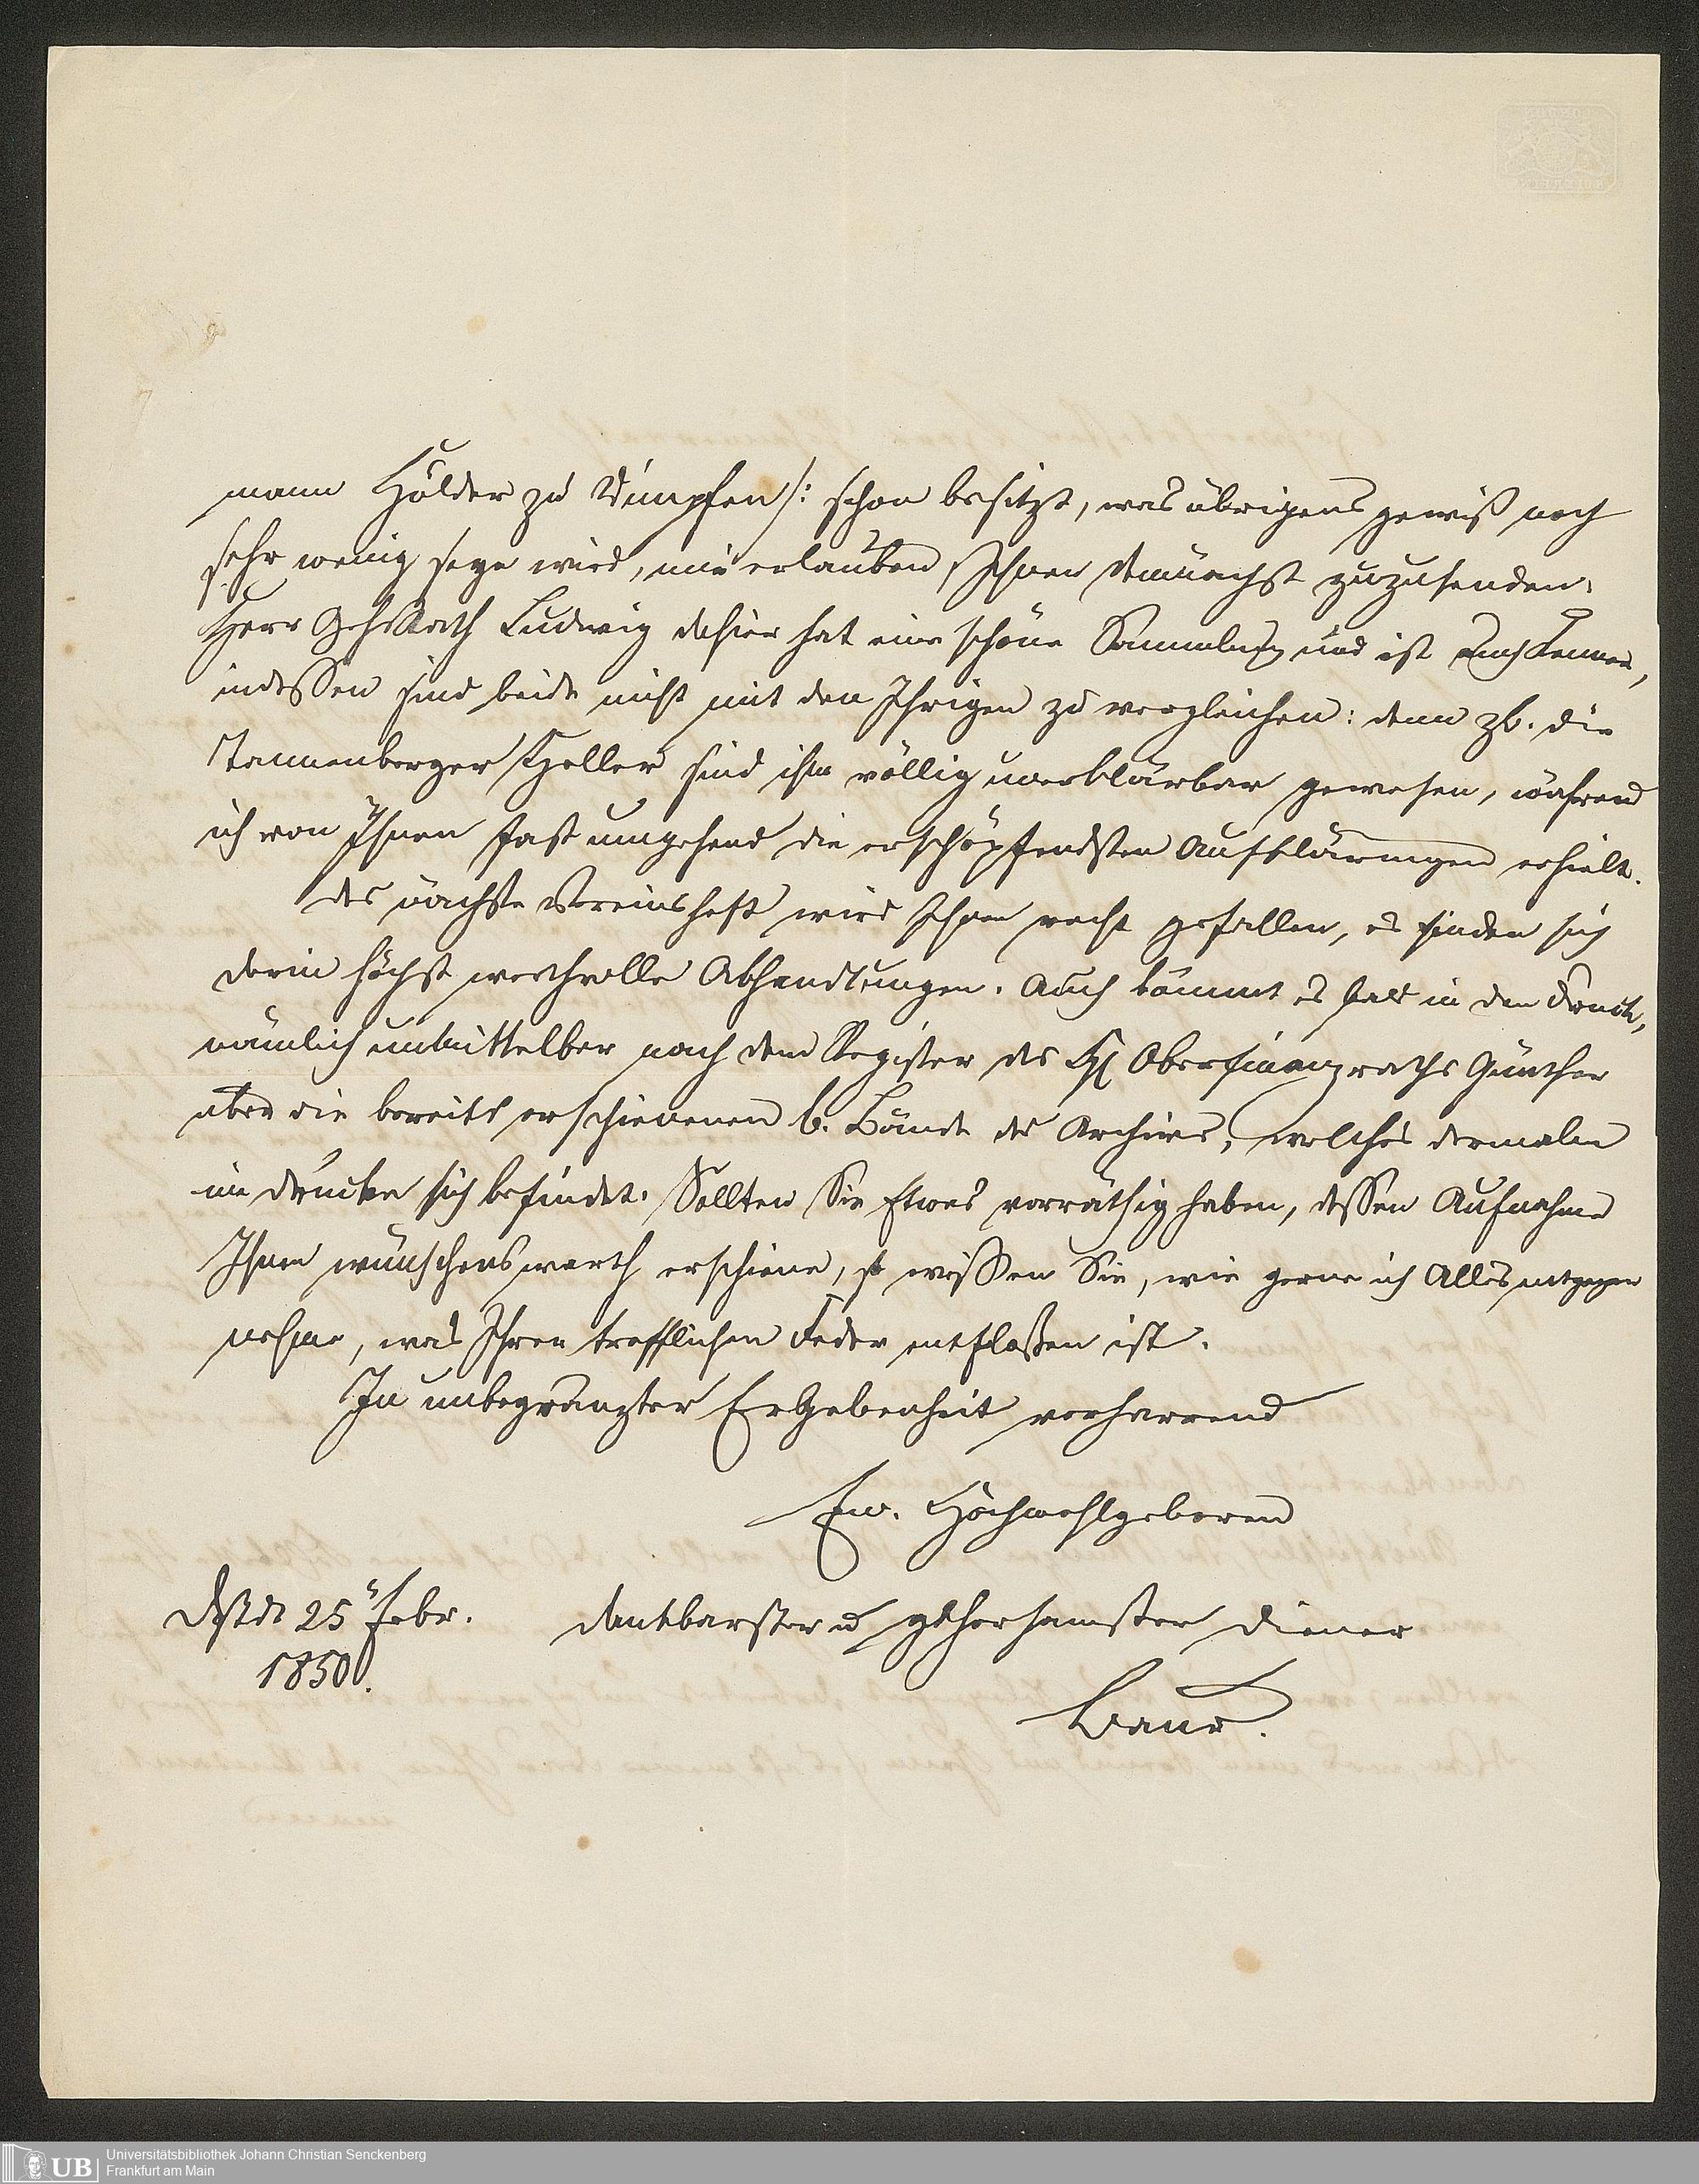 mann Hölder zu Wimpfen :/ schon besitzt, was übrigens gewiß noch
sehr wenig seyn wird, mir erlauben, Ihnen demnächst zuzusenden.
Herr Geh. Rath Ludwig dahier hat eine schöne Sammlung und ist auch Kenner,
indessen sind beide nicht mit den Ihrigen zu vergleichen: denn zb. die
Tannenberger Heller sind ihm völlig unerklärbar gewesen, während
ich von Ihnen fast umgehend die erschöpfendsten Aufklärungen erhielt.
Das nächste Vereinsheft wird Ihnen recht gefallen, es finden sich
darin höchst werthvolle Abhandlungen. Auch kömmt es bald in den Druck,
nämlich unmittelbar nach dem Register des H Oberfinanzraths Günther
über die bereits erschienenen 6. Bände des Archives, welches dermalen
im Drucke sich befindet. Sollten Sie Etwas vorräthig haben, dessen Aufnahme
Ihnen wünschenswerth erschiene, so wissen Sie, wie gerne ich Alles entgegen
nehme, was Ihrer trefflichen Feder entfloßen ist.
In unbegränzter Ergebenheit verharrend
Ew. Hochwohlgeboren
Dstdt 25 Febr.
1850.
dankbarster u gehorsamster Diener
Baur.
UB Universitätsbibliothek Johann Christian Senckenberg
Frankfurt am Main